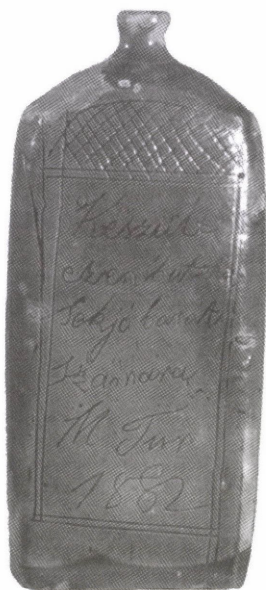 Készült
Sok jó barátok
Számára
M Túr
1882